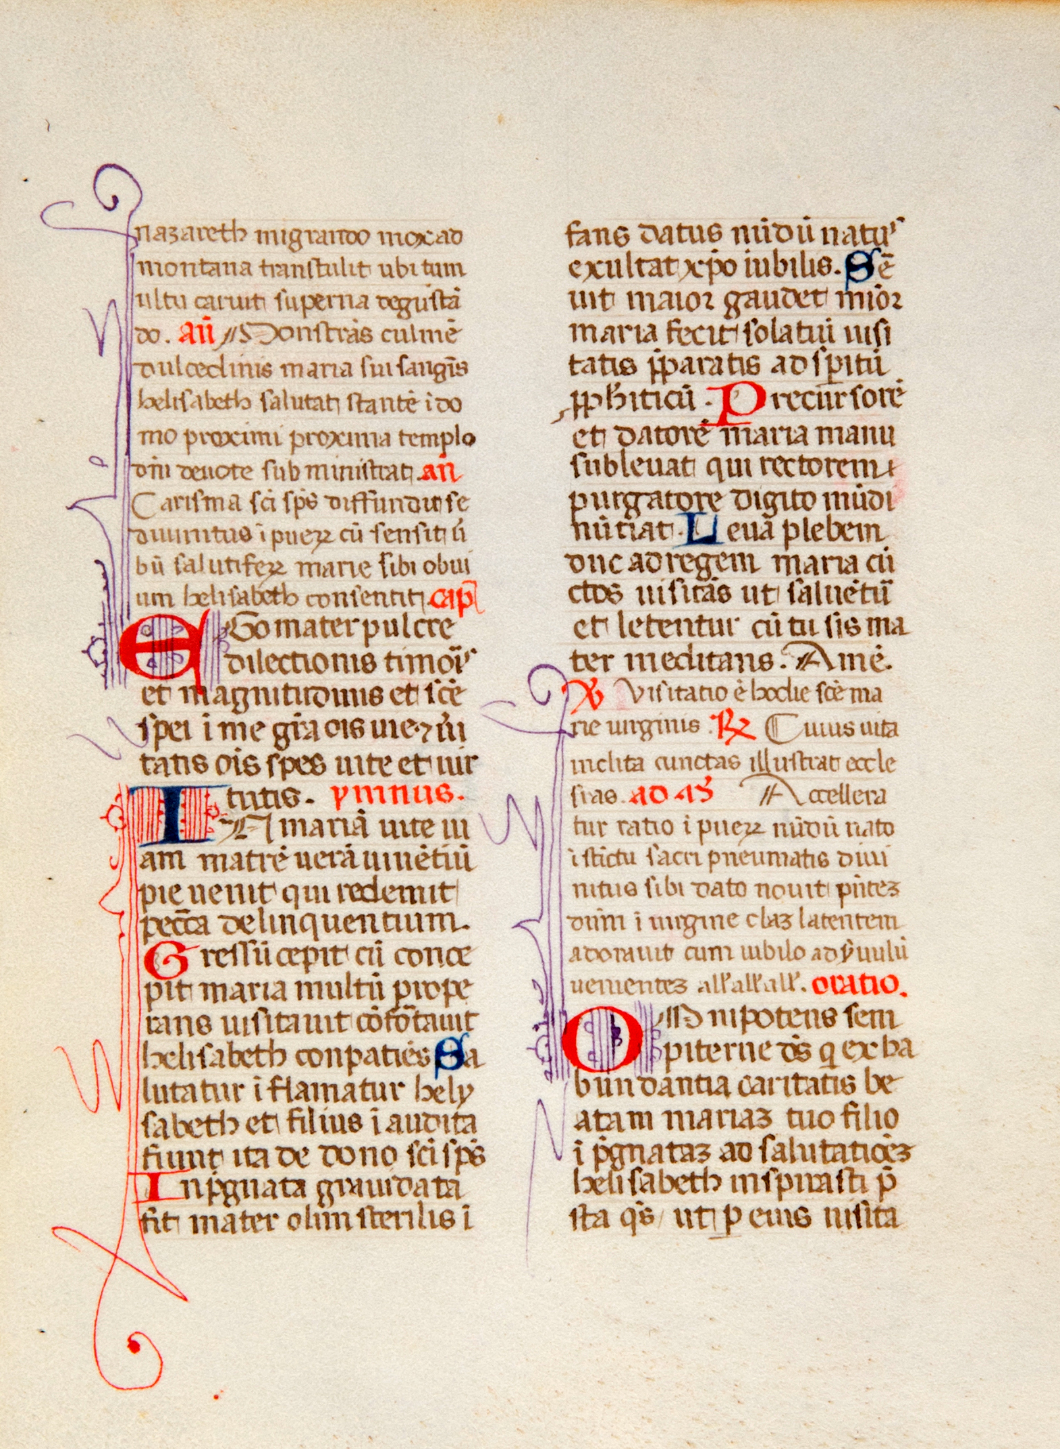 nazareth migrando mox ad
montana transtulit ubi tum
ultu caruit superna degustā
do. añ Monstrās culmē
dulcedinis maria sui sangīs
helisabeth salutat stantē ī do
mo proximi proxima templo
dñi deuote subministrat. añ
Carisma sci spс diffunditur se
diuinitus ī pueꝝ cū sensit ū
bū salutifeꝝ marie sibi obui
um helisabeth consentit. capl
EGo mater pulcre
dilectionis timoris
et magnitudinis et scē
spei ī me gr̄a oīs uie ⁊ u̇i
tatis oīs spes uite et uir
tutis. ymnus.
IN mariā uite ui
am matrē uerā uiuētiū
pie uenit qui redemit
pecc̄a delinquentium.
Gressū cepit cū conce
pit maria multū prope
rans uisitauit cōfōtauit
helisabeth conpatiēs Sa
lutatur ī flamatur hely
sabeth et filius ī audita
fiunt ita de dono sc̄i sp̄s
Inp̄gnata grauidata
fit mater olim sterilis ī
fans datus mūdū natus
exultat xp̄o iubilis. Sē
uit maior gaudet mīor
maria fecit solatiū uisi
tatis p̄paratis ad spiritū
ꝓph̄iticū. Precursorē
et datorē maria manu
subleuat qui rectorem
purgatore digito mūdi
nūtiat. Leuā plebem
duc ad regem maria cū
ctos uisitās ut saluētū
et letentur cū tu sis ma
ter meditans. Amē.
V Visitatio ē hodie scē ma
rie uirginis. ℞ Cuius uita
inclita cunctas illustrat eccle
sias. ad aꝫ Accellera
tur ratio ī pueꝝ mūdū nato
ī stīctu sacri pneumatis diui
nitus sibi dato nouit pn̄teꝫ
dūm ī uirgine claꝫ latentem
adorauit cum iubilo ad p̄uulū
uenientez all'all'all'. oratio.
OMnipotens sem
piterne ds̄ q̄ ex ha
bundantia caritatis be
atam mariaꝫ tuo filio
ī p̄gnataꝫ ad salutatioeꝫ
helisabeth inspirasti p̄
sta qs̄ ut ꝑ eius uisita